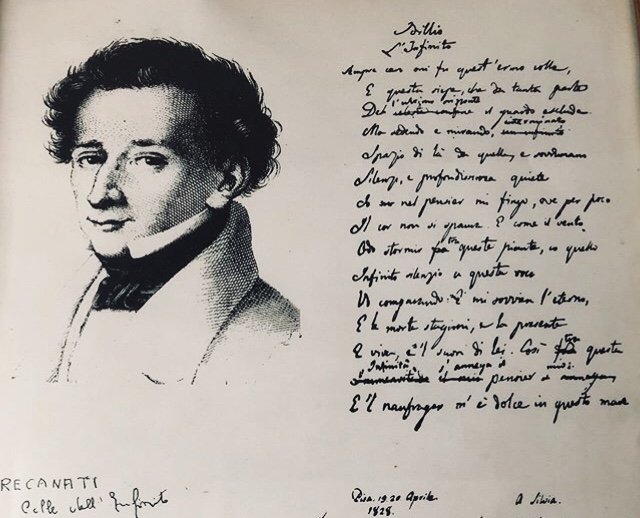 Idillio
L'Infinito
Sempre caro mi fu quest'ermo colle,
E questa siepe, che da tanta parte
l'ultimo orizonte
Del celeste confine il guardo esclude.
interminato
Ma sedendo e mirando, un infinito
Spazio di là da quella, e sovrumani
Silenzi, e profondissima quiete
Io nel pensier mi fingo, ove per poco
Il cor non si spaura. E come il vento
tra
Odo stormir fra queste piante, io quello
Infinito silenzio a questa voce
Vo comparando: E mi sovvien l'eterno,
E le morte stagioni, e la presente
tra
E viva, e 'l suon di lei. Così fra questa
Infinità s'annega il mio
Immensità il mio pensier s'annega,
E 'l naufragar m'è dolce in questo mare
RECANATI
Colle dell'Infinito
Pisa. 19. 20 Aprile.
1828.
A Silvia.